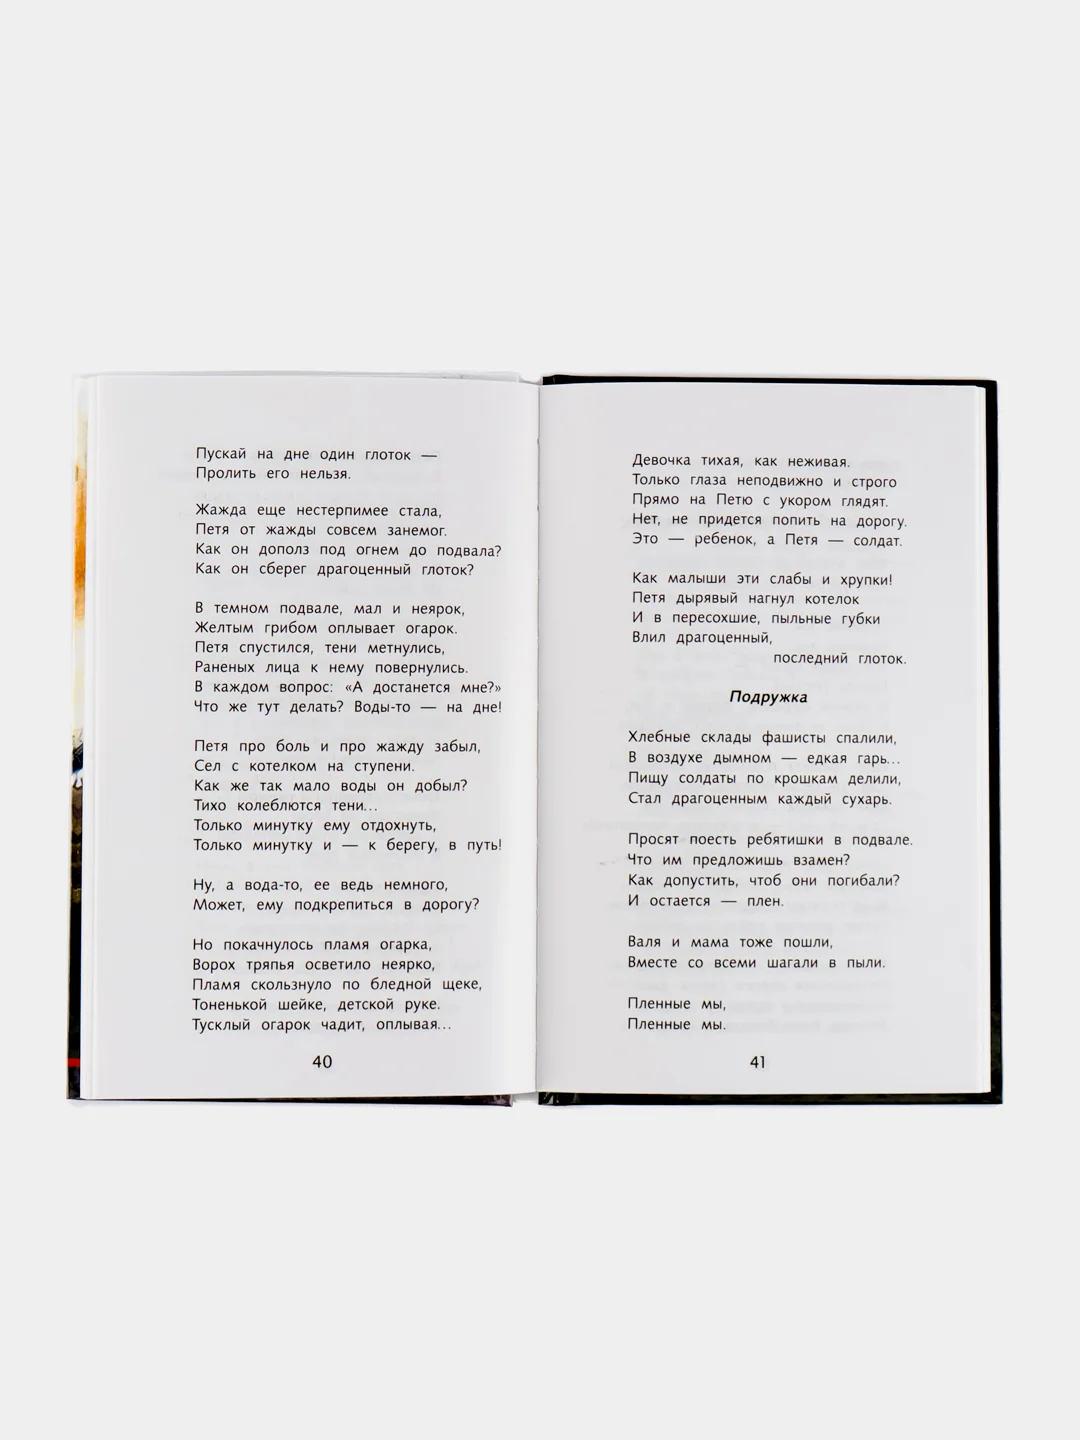 Пускай на дне один глоток —
Пролить его нельзя.
Жажда еще нестерпимее стала,
Петя от жажды совсем занемог.
Как он дополз под огнем до подвала?
Как он сберег драгоценный глоток?
В темном подвале, мал и неярок,
Желтым грибом оплывает огарок.
Петя спустился, тени метнулись,
Раненых лица к нему повернулись.
В каждом вопрос: «А достанется мне?»
Что же тут делать? Воды-то — на дне!
Петя про боль и про жажду забыл,
Сел с котелком на ступени.
Как же так мало воды он добыл?
Тихо колеблются тени...
Только минутку ему отдохнуть,
Только минутку и — к берегу, в путь!
Ну, а вода-то, ее ведь немного,
Может, ему подкрепиться в дорогу?
Но покачнулось пламя огарка,
Ворох тряпья осветило неярко,
Пламя скользнуло по бледной щеке,
Тоненькой шейке, детской руке.
Тусклый огарок чадит, оплывая...
40
Девочка тихая, как неживая.
Только глаза неподвижно и строго
Прямо на Петю с укором глядят.
Нет, не придется попить на дорогу.
Это — ребенок, а Петя — солдат.
Как малыши эти слабы и хрупки!
Петя дырявый нагнул котелок
И в пересохшие, пыльные губки
Влил драгоценный,
последний глоток.
Подружка
Хлебные склады фашисты спалили,
В воздухе дымном — едкая гарь...
Пищу солдаты по крошкам делили,
Стал драгоценным каждый сухарь.
Просят поесть ребятишки в подвале.
Что им предложишь взамен?
Как допустить, чтоб они погибали?
И остается — плен.
Валя и мама тоже пошли,
Вместе со всеми шагали в пыли.
Пленные мы,
Пленные мы.
41